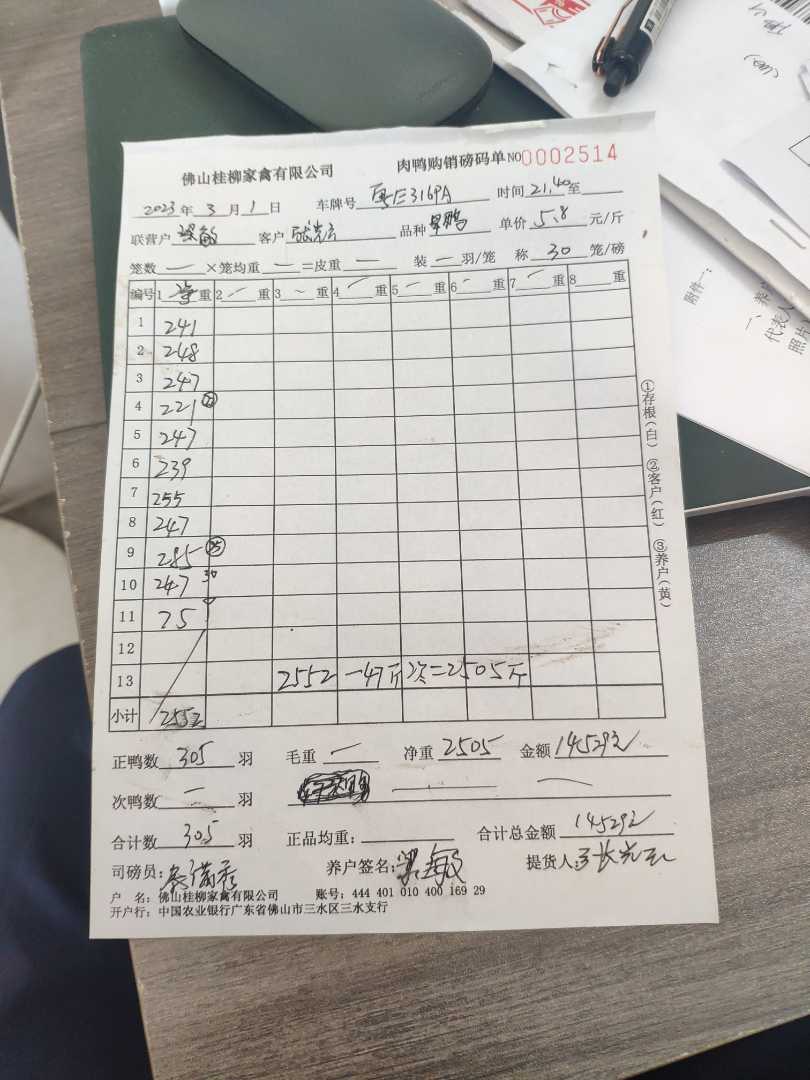 佛山桂柳家禽有限公司 肉鸭购销磅码单 NO0002514
2023年3月1日 车牌号 粤E3169A 时间21.40至
联营户 梁敏 客户 品种 单价 5.8 元/斤
笼数 一 ×笼均重 一 =皮重 一 装 一 羽/笼 称 30 笼/磅
编号 1 重 2 一 重 3 ~ 重 4 一 重 5 一 重 6 一 重 7 一 重 8 重
1 241
2 248
3 247
4 221
5 247
6 239
7 255
8 247
9 285 25
10 247 30
11 75
12
13 2552 一47斤 =2505斤
小计 2552
正鸭数 305 羽 毛重 一 净重 2505 金额 14529元
次鸭数 一 羽
合计数 305 羽 正品均重: 合计总金额 14529元
司磅员: 养户签名: 梁敏 提货人:
户 名: 佛山桂柳家禽有限公司 账号: 444 401 010 400 169 29
开户行: 中国农业银行广东省佛山市三水区三水支行
①存根(白) ②客户(红) ③养户(黄)
附件一:
一、养
代表人
照片